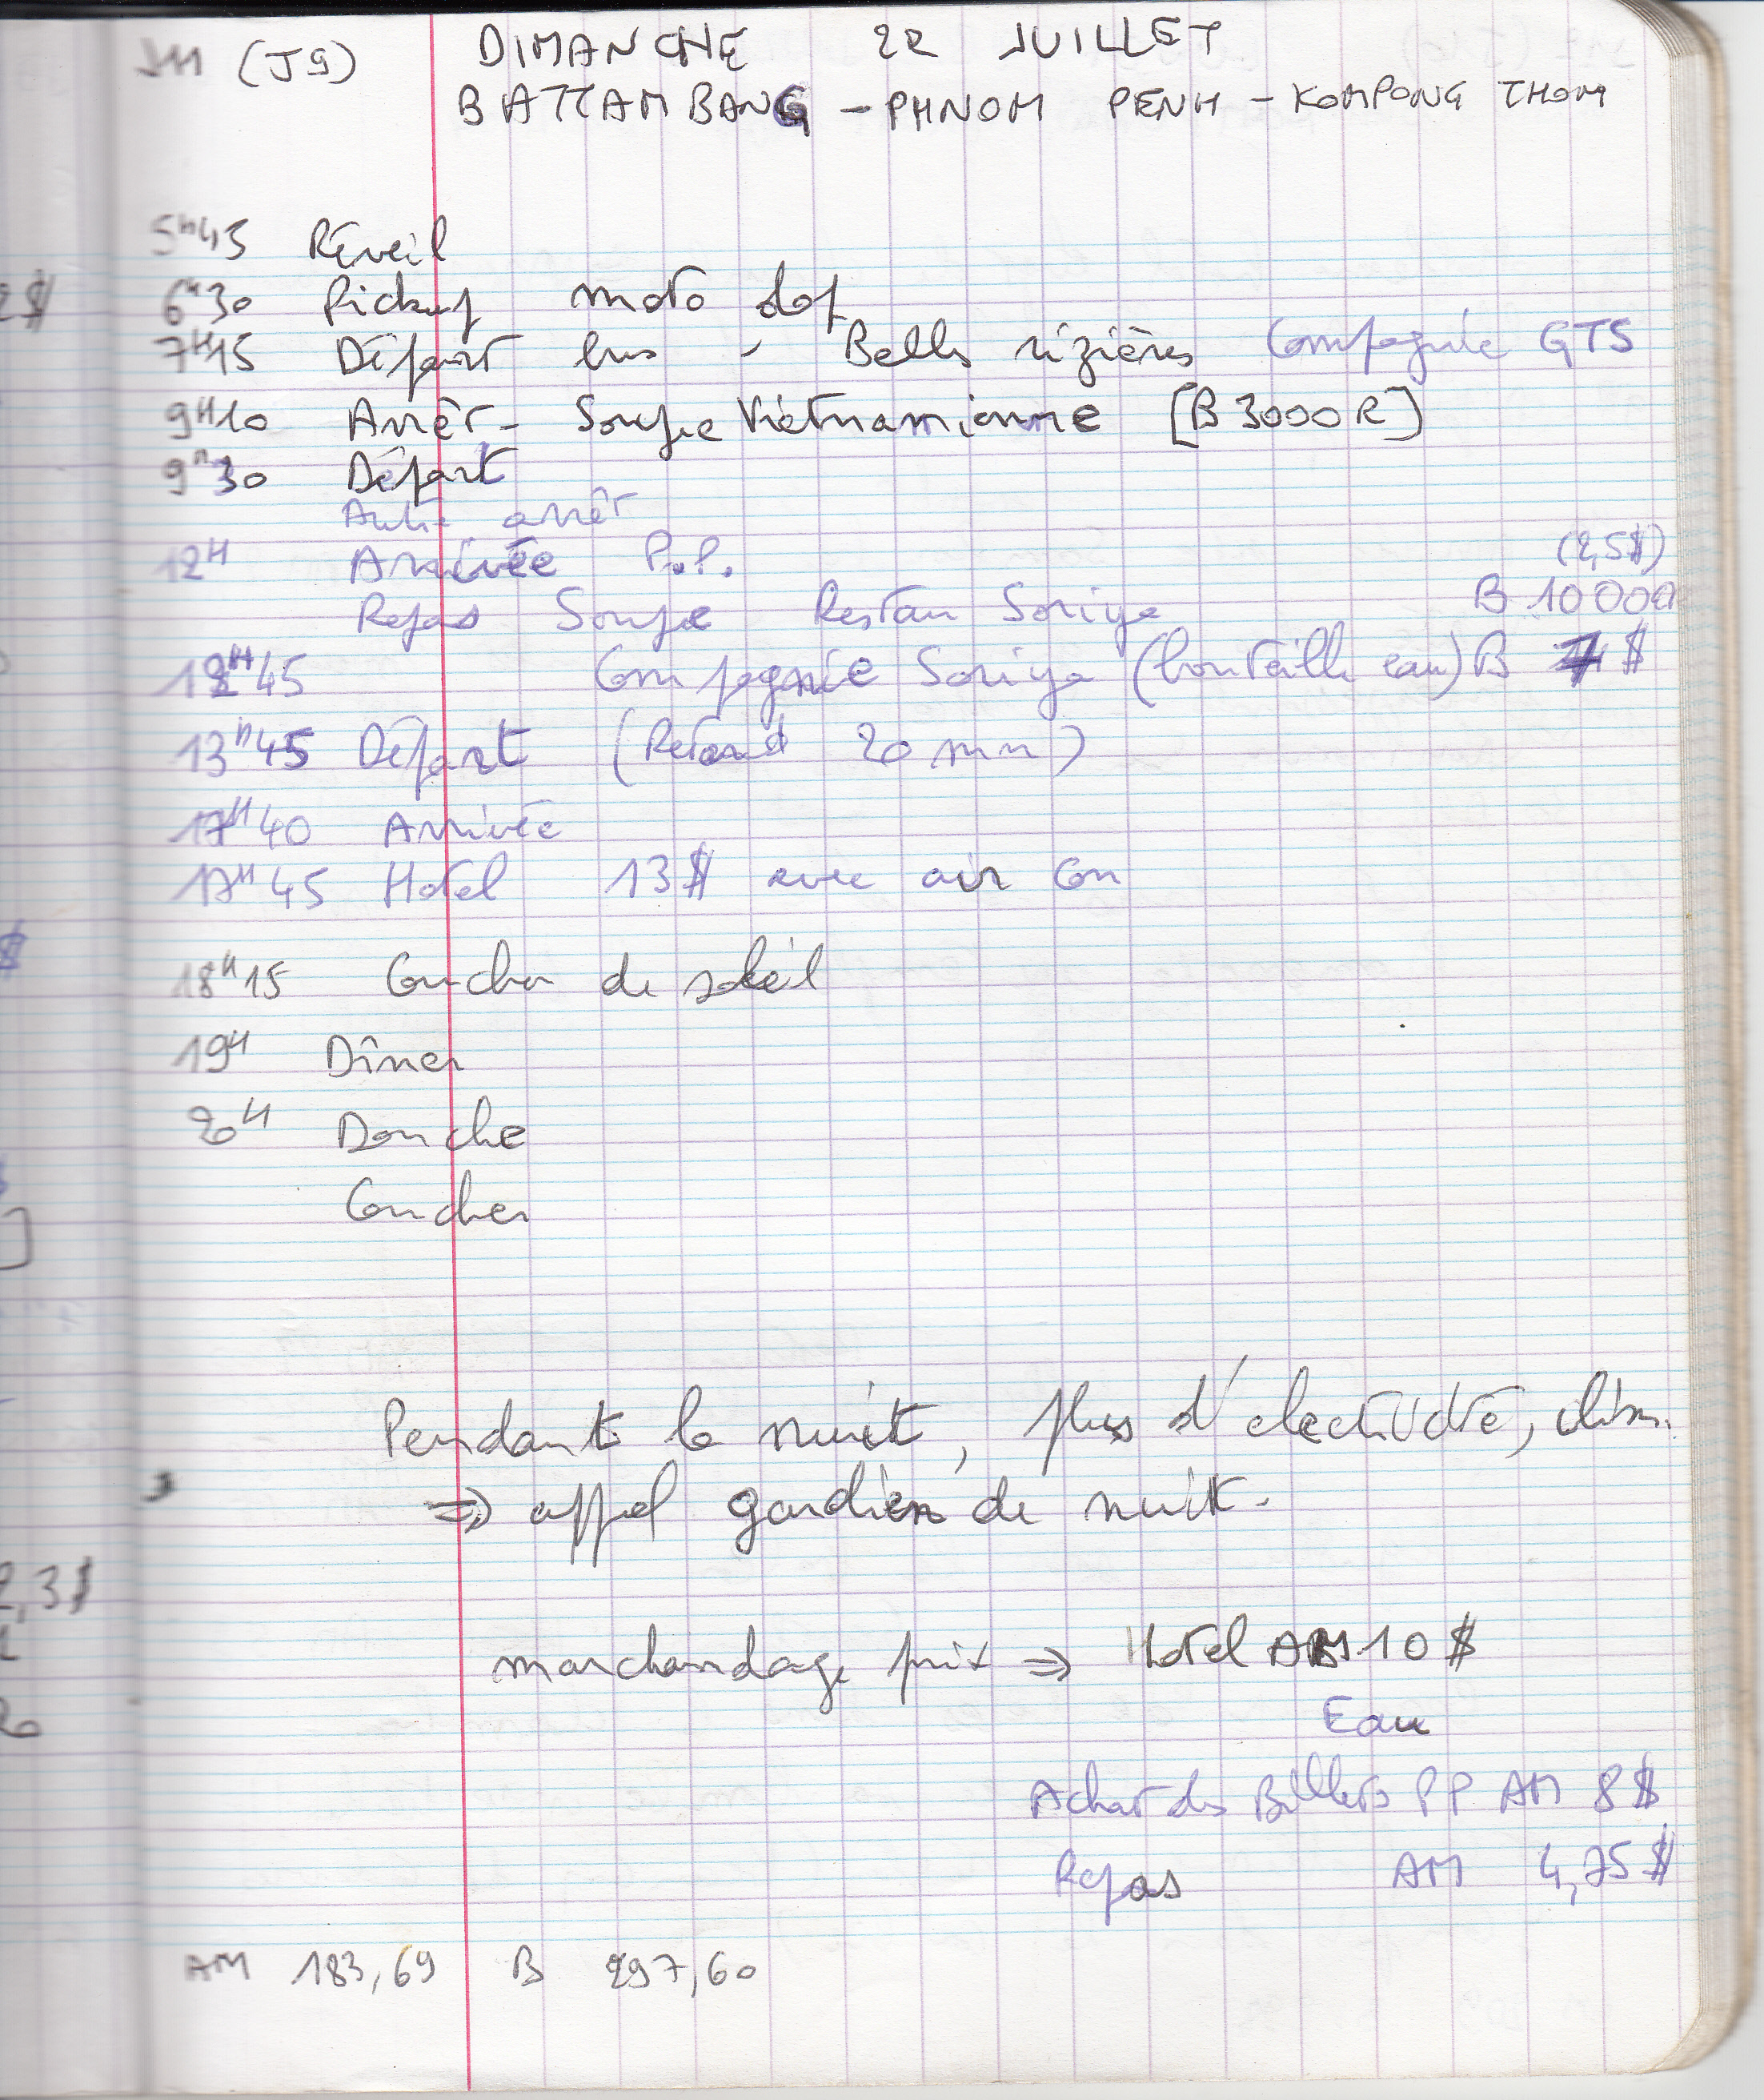 J11 (J9) DIMANCHE 22 JUILLET
BATTAMBANG - PHNOM PENH - KOMPONG THOM
5H45 Réveil
6H30 Pickup moto dop
7H15 Départ bus - Belles rizières Compagnie GTS
9H10 Arrêt - Soupe Vietnamienne [B 3000 R]
9H30 Départ
Autre arrêt
12H Arrivée P.P. (2,5$)
Repas Soupe Restau Soriya B 10 000
12H45 Compagnie Soriya (bouteille eau) B $
13H45 Départ (Retard 20 mn)
17H40 Arrivée
17H45 Hotel 13$ avec air con
18H15 Coucher de soleil
19H Dîner
20H Douche
Coucher
Pendant la nuit, plus d'électricité, clim.
⇒ appel gardien de nuit.
marchandage prix ⇒ Hotel AM 10 $
Eau
Achat des Billets PP AM 8 $
Repas AM 4,75 $
AM 183,69 B 297,60
2$
$
]
2,3$